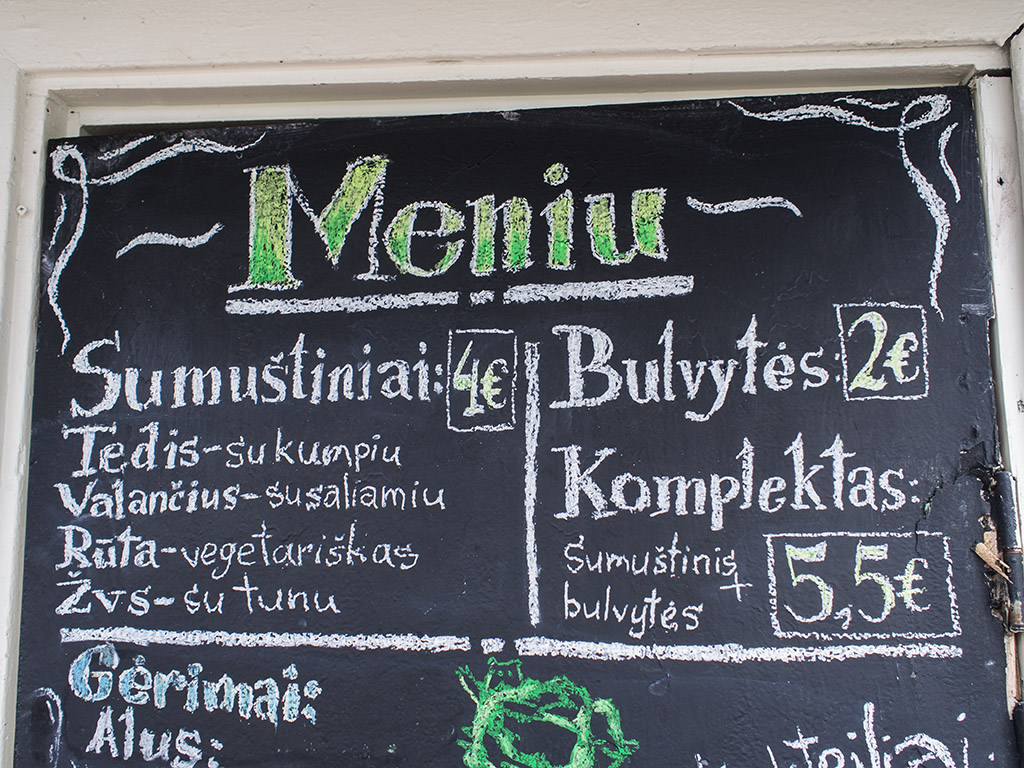 Meniu
Sumuštiniai: 4€
Tedis-su kumpiu
Valančius-su saliamiu
Rūta-vegetariškas
Žvs-su tunu
Bulvytės: 2€
Komplektas:
sumuštinis
+
bulvytės
5,5€
Gėrimai:
Alus: